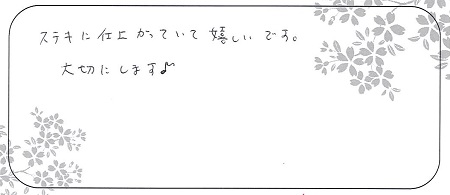 ステキに仕上がっていて嬉しいです。
大切にします♪